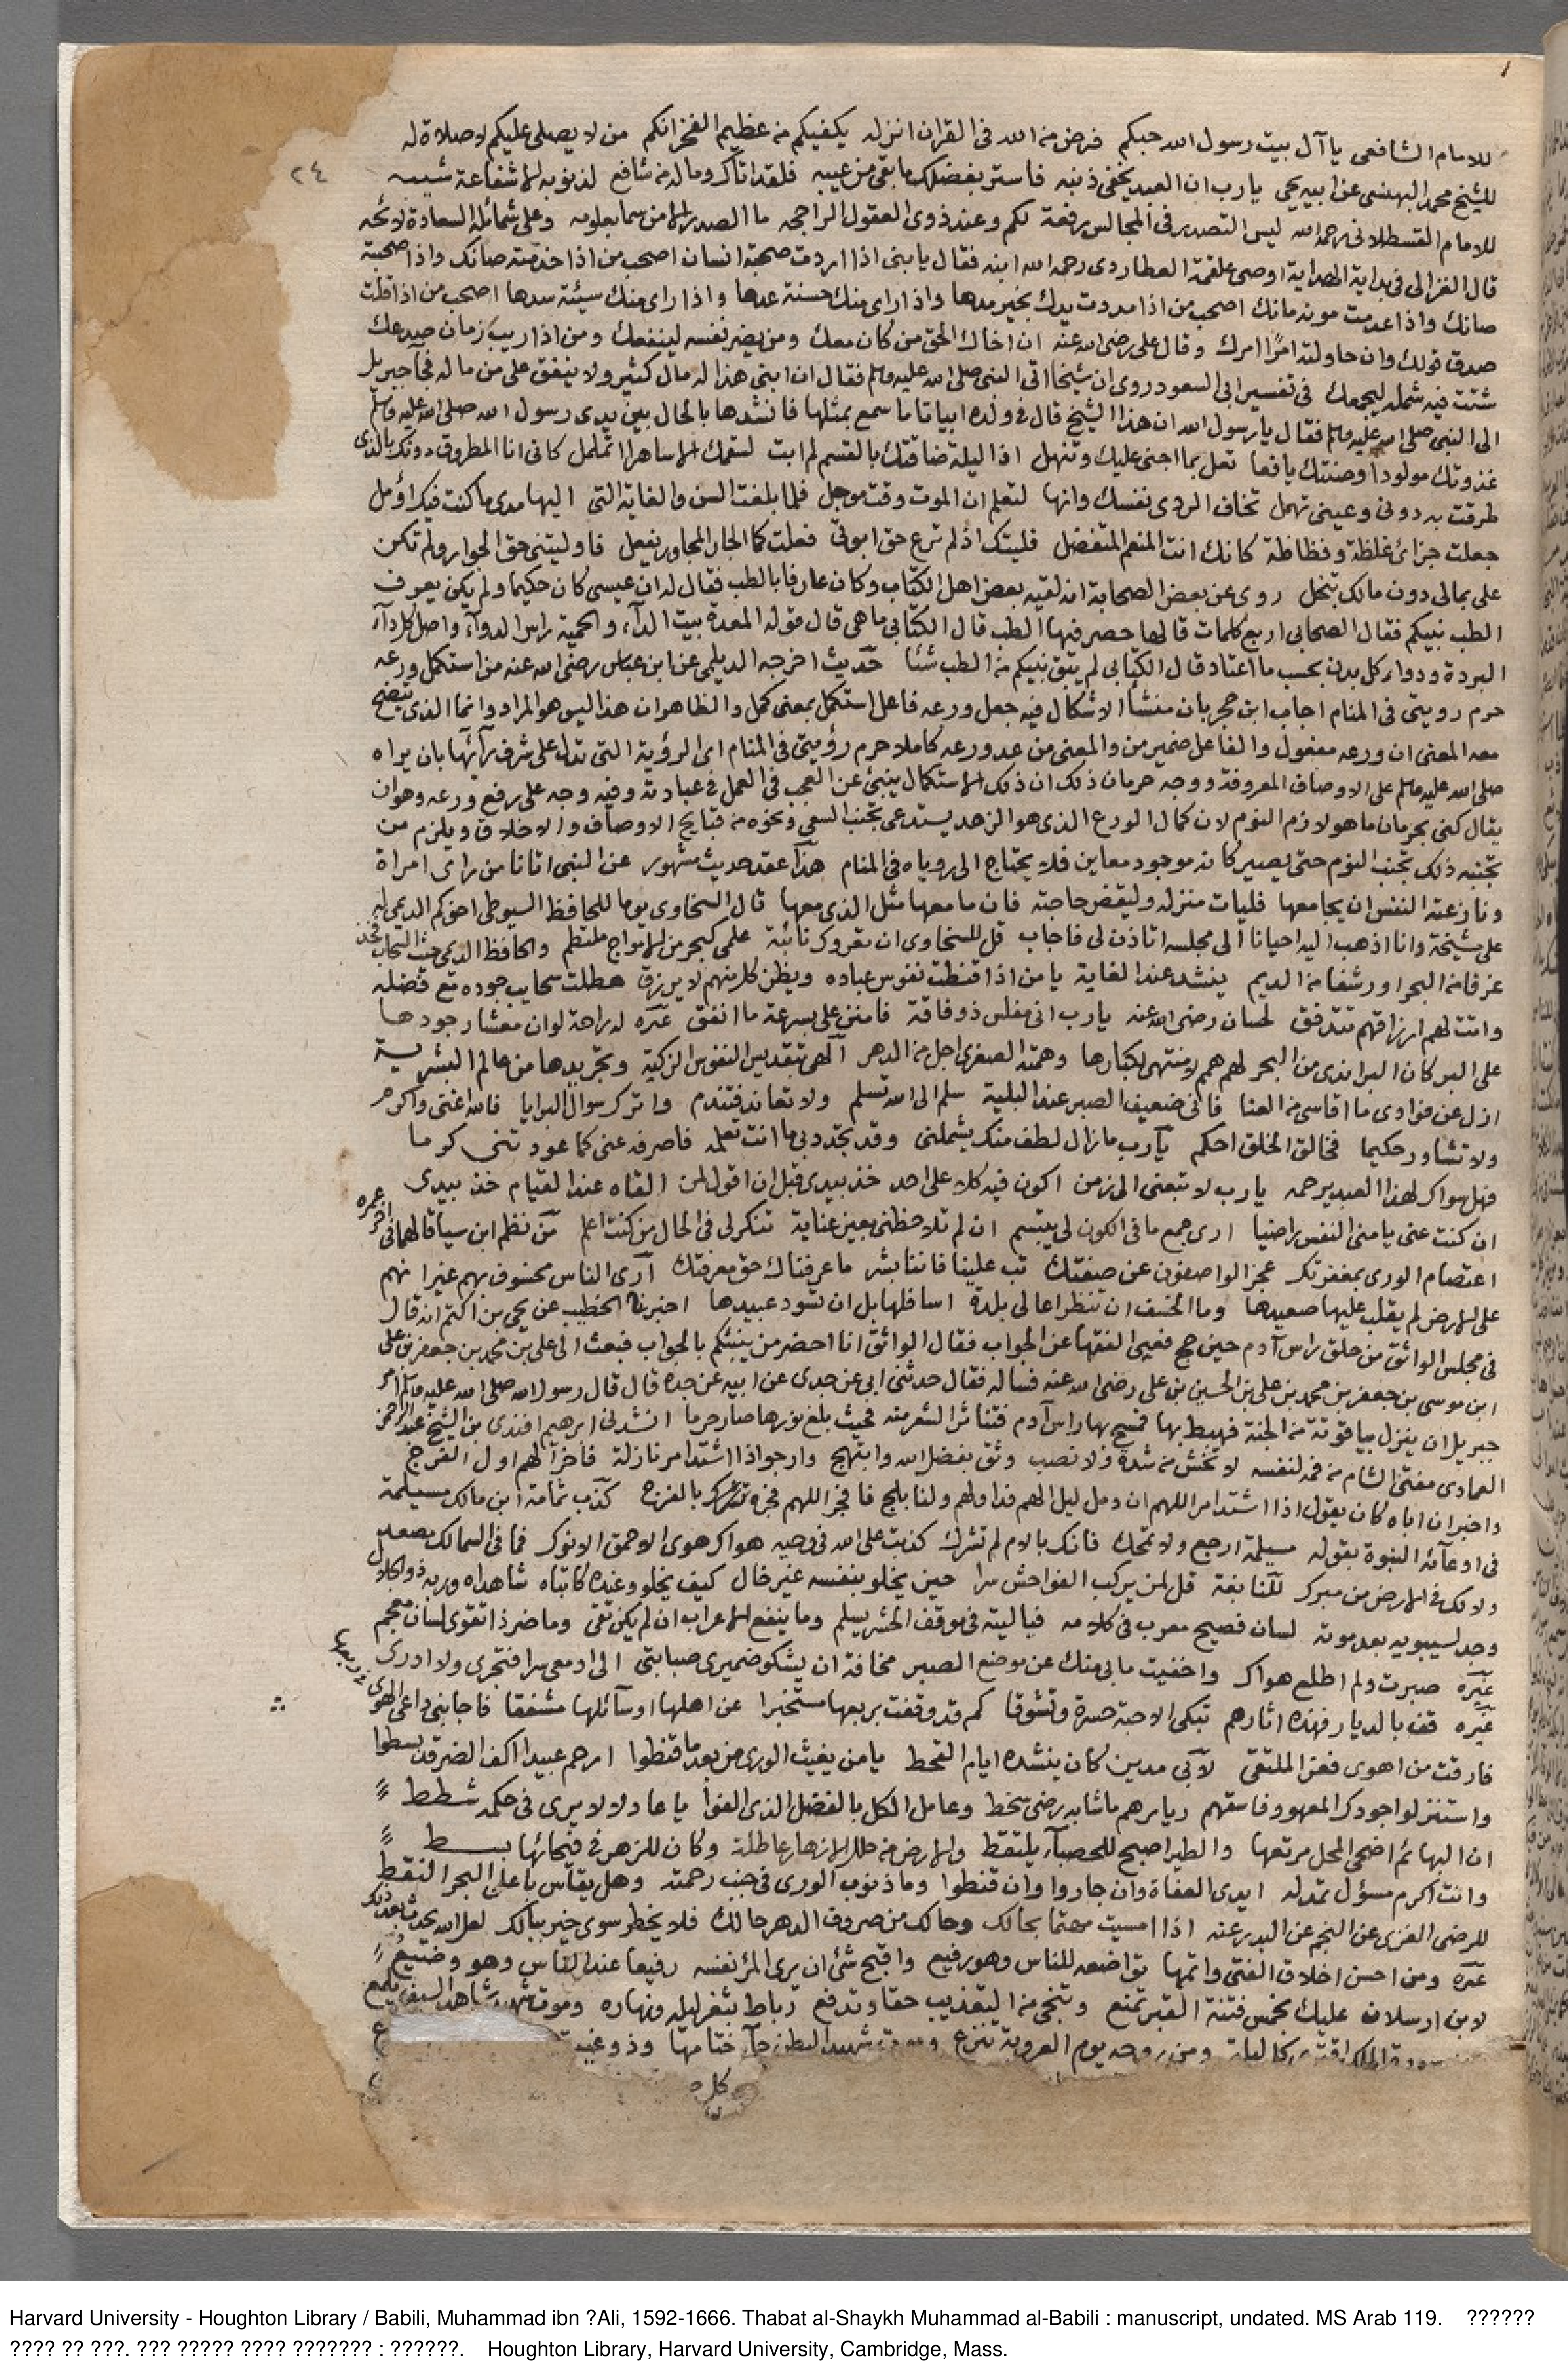 ١
٢٤
للامام الشافعى يا آل بيت رسول الله حبكم فرض من الله فى القران انزله يكفيكم من عظيم الفخر انكم من لا يصلى عليكم لا صلاة له
للشيخ محمد البهنسى عن ابيه يحيى يا رب ان العبد يخفى ذنبه فاستر بفضلك ما بقى من عيبه فلقد اتاك وماله من شافع لذنوبه الا شفاعة شيبه
للامام القسطلانى رحمه الله ليس التصدر فى المجالس رفعة لكم وعند ذوى العقول الراجحه ما الصدر الا من سما بعلومه وعلى شمائله السعادة لائحه
قال الغزالى فى بداية الهداية اوصى علقمة العطاردى رحمه الله ابنه فقال يا بنى اذا اردت صحبة انسان اصحب من اذا خدمته صانك واذا صحبته
صانك واذا عدمت مونه مانك اصحب من اذا مددت يدك بخير مدها واذا راى منك حسنة عدها واذا راى منك سيئة سدها اصحب من اذا قلت
صدق قولك وان حاولته امرا امرك وقال على رضى الله عنه ان اخاك الحق من كان معك ومن يضر نفسه لينفعك ومن اذا ريب زمان صدعك
شتت فيه شمله ليجمعك فى تفسير ابى السعود روى ان شيخا اتى النبى صلى الله عليه وسلم فقال ان ابنى هذا له مال كثير ولا ينفق على من ماله فجآ جبريل
الى النبى صلى الله عليه وسلم فقال يا رسول الله ان هذا الشيخ قال فى ولده ابياتا ما سمع بمثلها فانشدها بالحال بين يدى رسول الله صلى الله عليه وسلم
غذوتك مولودا وصنتك يافعا تعل بما اجنى عليك وتنهل اذا ليلة ضاقتك بالقسم لم ابت لسقمك الا ساهرا اتململ كانى انا المطروق دونك بالذى
طرقت به دونى وعينى تهمل تخاف الردى نفسك وانها لتعلم ان الموت وقت موجل فلما بلغت السن والغاية التى اليها مدى ما كنت فيك اؤمل
جعلت جزائ غلظة وفظاظة كانك انت المنعم المتفضل فليتك اذ لم ترع حق ابوتى فعلت كما الجار المجاور يفعل فاوليتنى حق الجوار ولم تكن
على بمالى دون مالك تبخل روى عن بعض الصحابة انه لقيه بعض اهل الكتاب وكان عارفا بالطب فقال له ان عيسى كان حكيما ولم يكن يعرف
الطب نبيكم فقال الصحابى اربع كلمات قالها حصر فيها الطب قال الكتابى ما هى قال قوله المعدة بيت الدآء والحمية راس الدوآء واصل كل دآء
البردة ودواء كل بدن بحسب ما اعتاد قال الكتابى لم يبق نبيكم من الطب شئا حديث اخرجه الديلمى عن ابن عباس رضى الله عنه من استكمل ورعه
حرم رويتى فى المنام اجاب ابن حجر بان منشأ الاشكال فيه جعل ورعه فاعل استكمل بمعنى كمل والظاهر ان هذا ليس هو المراد وانما الذى يتضح
معه المعنى ان ورعه مفعول والفاعل ضمير من والمعنى من عد ورعه كاملا حرم رؤيتى فى المنام اى الرؤية التى تدل على شرف رآئها بان يراه
صلى الله عليه وسلم على الاوصاف المعروفة ووجه حرمان ذلك ان ذلك الاستكمال ينبئ عن العجب فى العمل فى عبادته وفيه وجه على رفع ورعه وهو ان
يقال كنى بحرمان ما هو لازم النوم لان كمال الورع الذى هو الزهد يستدعى تجنب السعى ونحوه من قبايح الاوصاف والاخلاق ويلزم من
تجنبه ذلك تجنب النوم حتى يصير كانه موجود معاين فلا يحتاج الى روياه فى المنام هذا عقد حديث مشهور عن النبى اتانا من راى امراة
ونازعته النفس ان يجامعها فليات منزله وليقض حاجته فان ما معها مثل الذى معها قال السخاوى يوما للحافظ السيوطى
على شيخة وانا اذهب اليه احيانا الى مجلسه اتاذن لى فاجاب قل للسخاوى ان تعروك نائبة علمى كبحر من الامواج ملتطم والحافظ الديمى غيث السحاب فخذ
غرفا من البحر او رشفا من الديم ينشد عند الغاية يا من اذا قنطت نفوس عباده ويظن كل منهم لا يرزق هطلت سحايب جوده مع فضله
واتت لهم ارزاقهم تتدفق لحسان رضى الله عنه يا رب انى مفلس ذو فاقة فامنن على بسرعة ما انفق غيره له راحة لو ان معشار جودها
على البر كان البر اندى من البحر لهم همم لا منتهى لكبارها وهمته الصغرى اجل من الدهر آلهى بتقديس النفوس الزكية وتجريدها من عالم البشرية
ازل عن فوادى ما اقاسى من العنا فانى ضعيف الصبر عند البلية سلم الى الله تسلم ولا تعاند فتندم واترك سوال البرايا فالله اغنى واكرم
ولا تشاور حكيما فخالق الخلق احكم يا رب ما زال لطف منك يشملنى وقد تجدد بى ما انت تعلمه فاصرفه عنى كما عودتنى كرما
فهل سواك لهذا العبد يرحمه يا رب لا تبعنى الى زمن اكون فيه كلا على احد خذ بيدى قبل ان اقول لمن القاه عند القيام خذ بيدى
ان كنت عنى يا منى النفس راضيا ارى جمع ما فى الكون لى يبتسم ان لم تلاحظنى بعين عناية تنكر لى فى الحال من كنت اعلم من نظم ابن سينا
اعتصام الورى بمغفرتك عجز الواصفون عن صفتك تب علينا فاننا بشر ما عرفناك حق معرفتك آرى الناس مخسوف بهم غير انهم
على الارض لم يقلب عليها صعيدها وما الخسف ان تنظر اعالى بلدة اسافلها بل ان تسود عبيدها اخبرنا الخطيب عن يحيى بن اكثم انه قال
فى مجلس الواثق من حلق راس آدم حين حج فعيى الفقها عن الجواب فقال الواثق انا احضر من ينبئكم بالجواب فبعث الى على بن محمد بن جعفر بن على
ابن موسى بن جعفر بن محمد بن على بن الحسين بن على رضى الله عنه فساله فقال حدثنى ابى عن جدى عن ابيه عن جده قال قال رسول الله صلى الله عليه وسلم امر
جبريل ان ينزل بياقوتة من الجنة فهبط بها فمسح بها راس آدم فتناثر الشعر منه فحيث بلغ نورها صار حرما انشدنى ابرهيم افندى بن الشيخ عبد الرحمن
العمادى مفتى الشام من فمه لنفسه لا تخش من شدة ولا نصب وثق بفضل الله وابتهج وارجو اذا اشتد امر نازلة فآخر الهم اول الفرج
واخبر ان اباه كان يقول اذا اشتد امر اللهم ان دمل ليل الهم كذب ثمامة ابن مالك مسيلمة
فى ادعآئه النبوة بقوله مسيلمة ارجع ولا تمحك فانك بالامر لم تشرك كذبت على الله فى وحيه هواك هوى الاحمق الانوك فما فى السما لك مصعد
ولا لك فى الارض من مبرك للنابغة قل لمن يركب الفواحش سرا حين يخلو بنفسه غير خال كيف يخلو وعنده كاتباه شاهداه وربه ذو الجلال
وجد لسيبويه بعد موته لسان فصيح معرب فى كلامه فياليته فى موقف الحشر يسلم وما ينفع الاعراب ان لم يكن تقى وما ضر ذا تقوى لسان معجم
غيره صبرت ولم اطلع هواك واخفيت ما بى منك عن موضع الصبر مخافة ان يشكو ضميرى صبابتى الى ادمعى سرا فتجرى ولا ادرى
غيره قف بالديار فهذه اثارهم تبكى الاحبة حسرة وتشوقا كم قد وقفت بربعها مستخبرا عن اهلها او سآئلها مشفقا فاجابنى داعى الهوى
فارقت من اهوى فعز الملتقى لآبى مدين كان ينشده ايام القحط يا من يغيث الورى من بعد ما قنطوا ارحم عبيدا اكف الضر قد بسطوا
واستنزلوا جودك المعهود فاسقهم ريا يرهم ما شابه رضى سخط وعامل الكل بالفضل الذى الفوا يا عادلا لا يرى فى حكمه شطط
ان البهائم اضحى المحل مرتعها والطير اصبح للحصبآء يلتقط والارض من حلل الازهار عاطلة وكان للزهر فى فتحائها بسط
وانت اكرم مسؤل تمد له ايدى العفاة وان جاروا وان قنطوا وما ذنوب الورى فى جنب رحمته وهل يقاس باعلى البحر النقط
للرضى الغزى عن النجم عن البدر عنه اذا امسيت مهتما بحالك وحالك من صروف الدهر حالك فلا يخطر سوى خير ببالك لعل الله يحدث بعد ذلك
غيره ومن احسن اخلاق الفتى واتمها تواضعه للناس وهو رفيع واقبح شئ ان يرى المرؤ نفسه رفيعا عند الناس وهو وضيع
لابن ارسلان عليك بخمس فتنة القبر تمنع وتنجى من التعذيب حقا وتدفع رباط بثغر ليله ونهاره وموت شهيد شاهد السيف يلمع
ومن روحه يوم العروبة تنزع وموت شهيد البطن جآء ختامها وذو غيبة
Harvard University - Houghton Library / Babili, Muhammad ibn ?Ali, 1592-1666. Thabat al-Shaykh Muhammad al-Babili : manuscript, undated. MS Arab 119. ??????
???? ?? ???. ??? ????? ???? ??????? : ??????. Houghton Library, Harvard University, Cambridge, Mass.